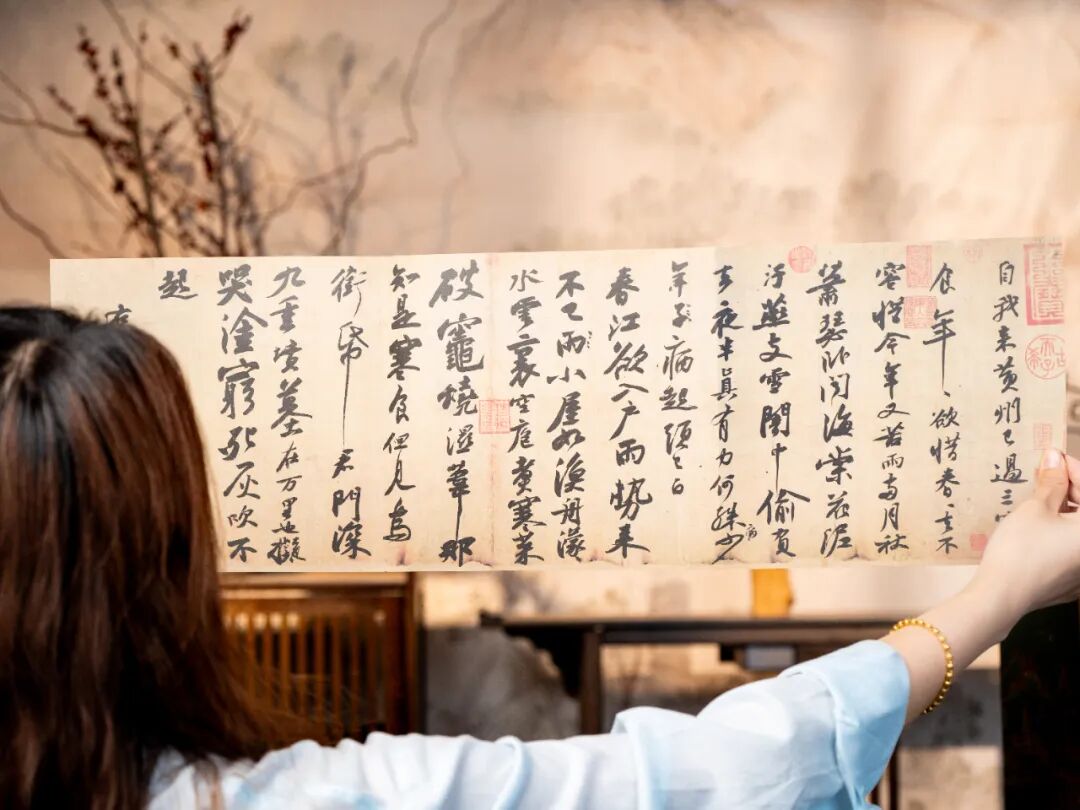 自我來黄州已過三
食年〻欲惜春〻去不
容惜今年又苦雨兩月秋
蕭瑟卧聞海棠花泥
汙燕支雪闇中偷負
去夜半真有力何殊病少
年子病起頭已白
春江欲入户雨勢来
不已雨小屋如漁舟濛
水雲裏空庖煮寒菜
破竈燒濕葦那
知是寒食但見烏
銜帋君門深
九重墳墓在万里也擬
哭塗窮死灰吹不
起